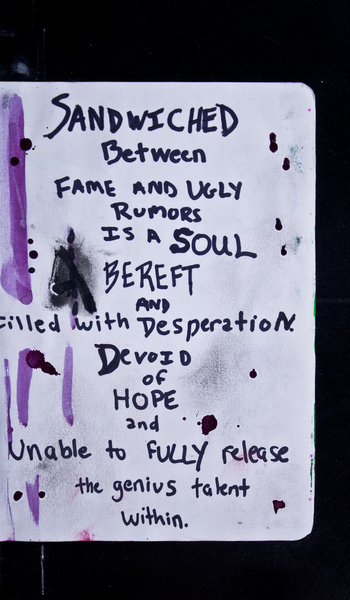 SANDWICHED
Between
FAME AND UGLY
RUMORS
IS A SOUL
BEREFT
AND
Filled with DesperatioN.
DEVOID
OF
HOPE
and
Unable to FULLY release
the genius talent
within.